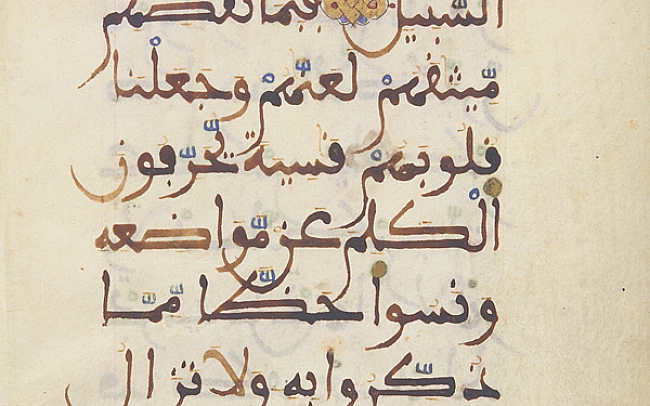 السَّبِيلِ فَبِمَا نَقْضِهِم
مِّيثَٰقَهُمْ لَعَنَّٰهُمْ وَجَعَلْنَا
قُلُوبَهُمْ قَٰسِيَةً يُحَرِّفُونَ
الْكَلِمَ عَن مَّوَاضِعِهِ
وَنَسُوا حَظًّا مِّمَّا
ذُكِّرُوا بِهِ وَلَا تَزَالُ